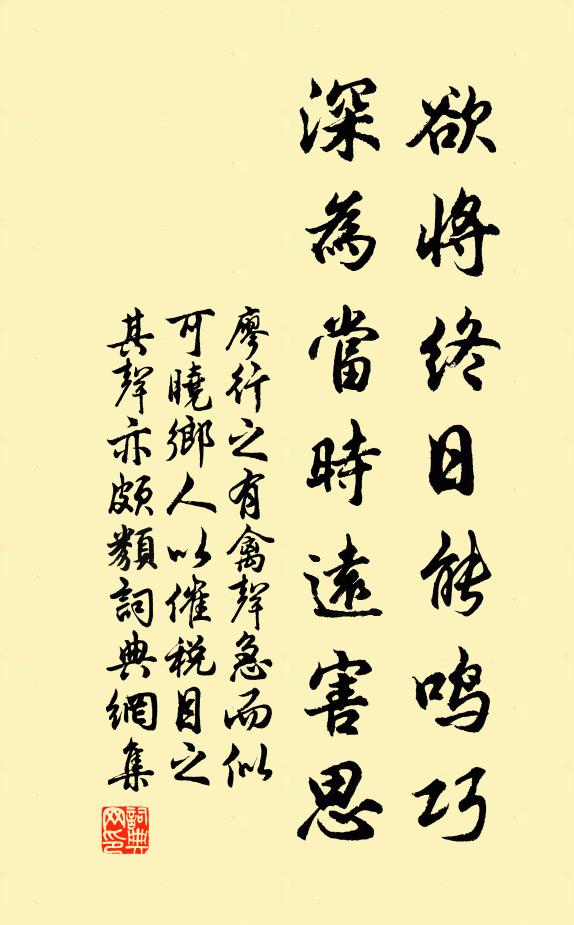 欲將終日能鳴巧
深為當時遠害思
廖行之有禽聲急而似
可曉鄉人以催税目之
其聲亦頗類詞典網集
詞典
网印